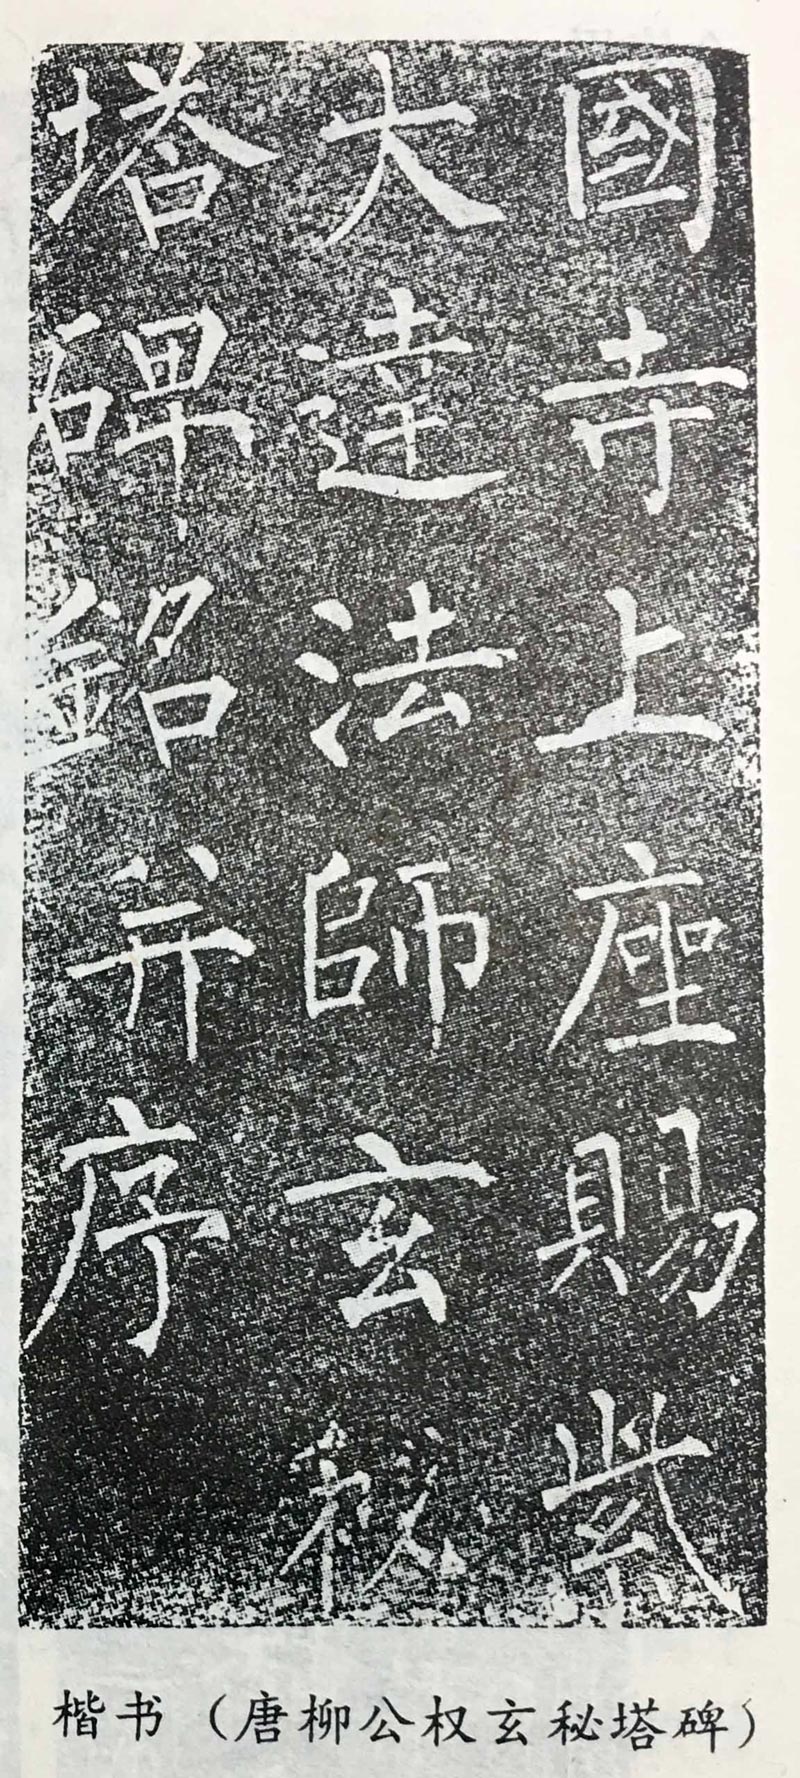 國寺上座賜紫
大達法師玄秘
塔碑銘并序
楷书（唐柳公权玄秘塔碑）